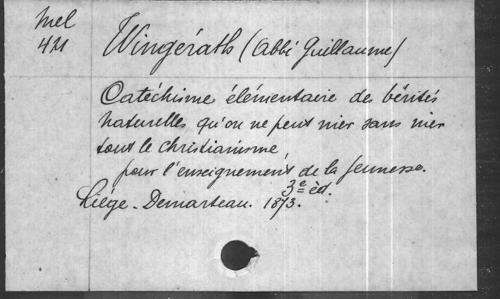 Mel
421
Wingérath (Abbé Guillaume)
Catéchisme élémentaire de vérités
naturelles qu'on ne peut nier sans nier
tout le christianisme,
pour l'enseignement de la jeunesse.
3e éd.
Liége. Demarteau. 1873.